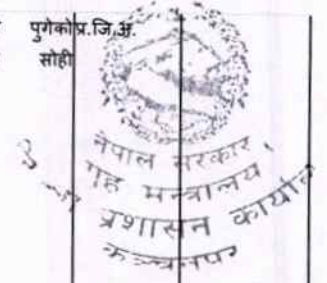 पुगेको प्र.जि.अ.
सोही
नेपाल सरकार
गृह मन्त्रालय
प्रशासन कार्यालय
कञ्चनपुर